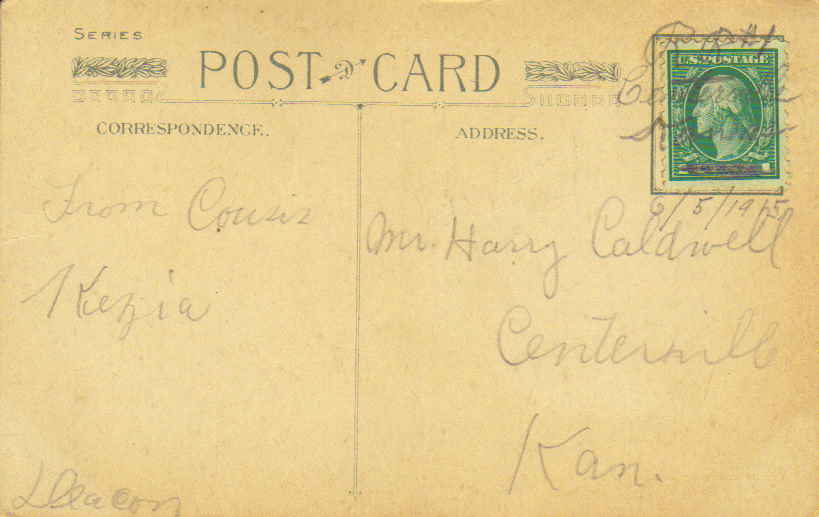 SERIES
POST CARD
CORRESPONDENCE.
ADDRESS.
U.S. POSTAGE
6/5/1915
From Cousin
Kezia
Deacon
Mr. Harry Caldwell
Centerville
Kan.